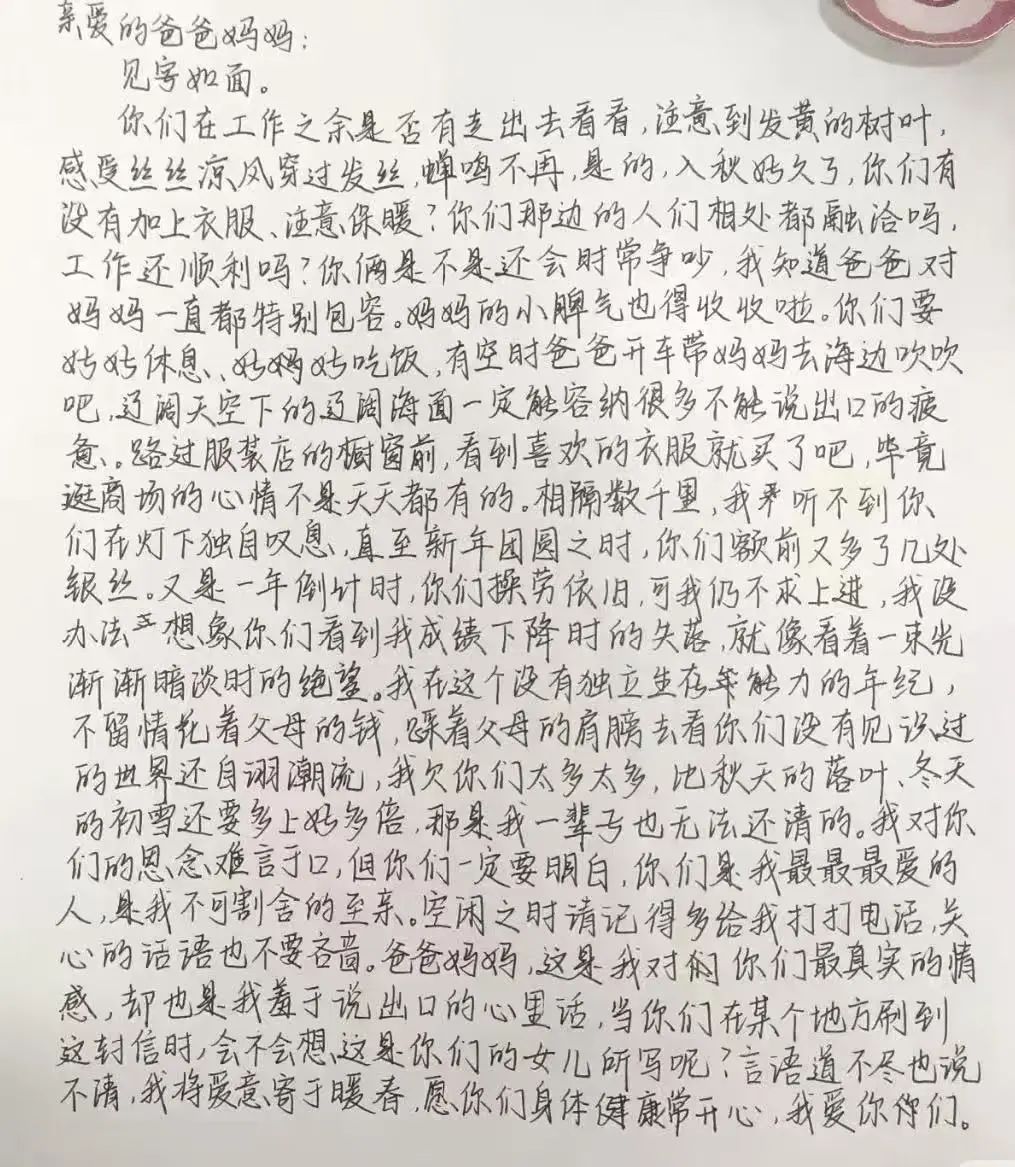 亲爱的爸爸妈妈：
见字如面。
你们在工作之余是否有走出去看看,注意到发黄的树叶,
感受丝丝凉风穿过发丝,蝉鸣不再,是的,入秋好久了,你们有
没有加上衣服、注意保暖?你们那边的人们相处都融洽吗,
工作还顺利吗?你俩是不是还会时常争吵,我知道爸爸对
妈妈一直都特别包容。妈妈的小脾气也得收收啦。你们要
好好休息、好妈好吃饭,有空时爸爸开车带妈妈去海边吹吹
吧,辽阔天空下的辽阔海面一定能容纳很多不能说出口的疲
惫。路过服装店的橱窗前,看到喜欢的衣服就买了吧,毕竟
逛商场的心情不是天天都有的。相隔数千里,我听不到你
们在灯下独自叹息,直至新年团圆之时,你们额前又多了几处
银丝。又是一年倒计时,你们操劳依旧,可我仍不求上进,我没
办法想象你们看到我成绩下降时的失落,就像看着一束光
渐渐暗淡时的绝望。我在这个没有独立生存能力的年纪,
不留情花着父母的钱,踩着父母的肩膀去看你们没有见识过
的世界还自诩潮流,我欠你们太多太多,比秋天的落叶、冬天
的初雪还要多上好多倍,那是我一辈子也无法还清的。我对你
们的思念难言于口,但你们一定要明白,你们是我最最最爱的
人,是我不可割舍的至亲。空闲之时请记得多给我打打电话,关
心的话语也不要吝啬。爸爸妈妈,这是我对你们最真实的情
感,却也是我羞于说出口的心里话,当你们在某个地方刷到
这封信时,会不会想这是你们的女儿所写呢?言语道不尽也说
不清,我将爱意寄于暖春,愿你们身体健康常开心,我爱你你们。